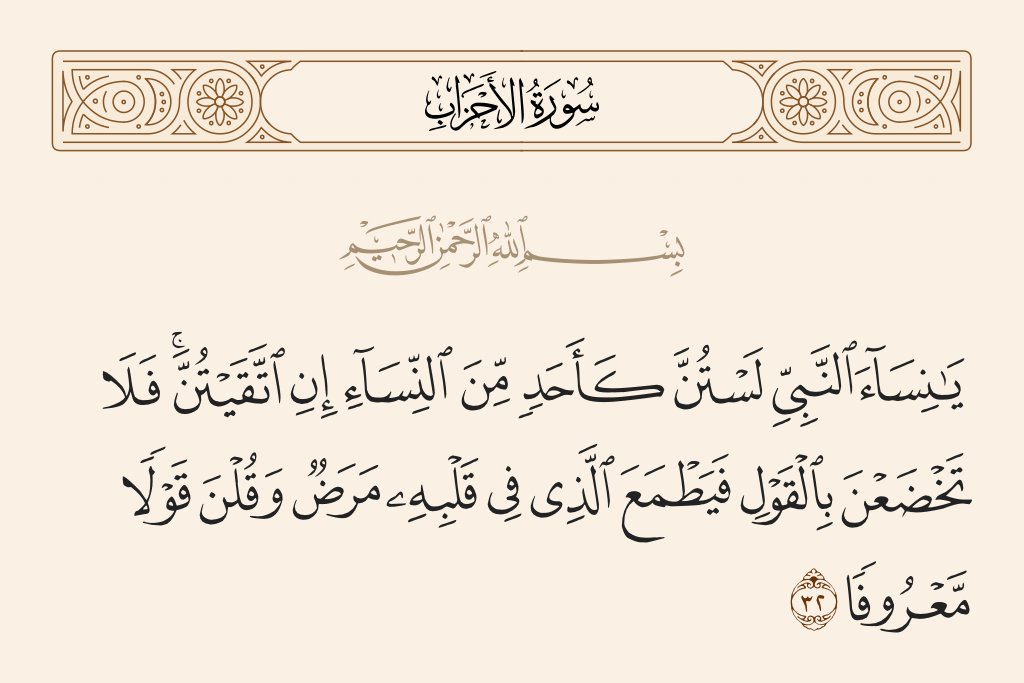 سُورَةُ الأَحْزَابِ
بِسْمِ ٱللَّهِ ٱلرَّحْمَٰنِ ٱلرَّحِيمِ
يَٰنِسَآءَ ٱلنَّبِىِّ لَسْتُنَّ كَأَحَدٍ مِّنَ ٱلنِّسَآءِ إِنِ ٱتَّقَيْتُنَّ ۚ فَلَا
تَخْضَعْنَ بِٱلْقَوْلِ فَيَطْمَعَ ٱلَّذِى فِى قَلْبِهِۦ مَرَضٌ وَقُلْنَ قَوْلًا
مَّعْرُوفًا ٣٢